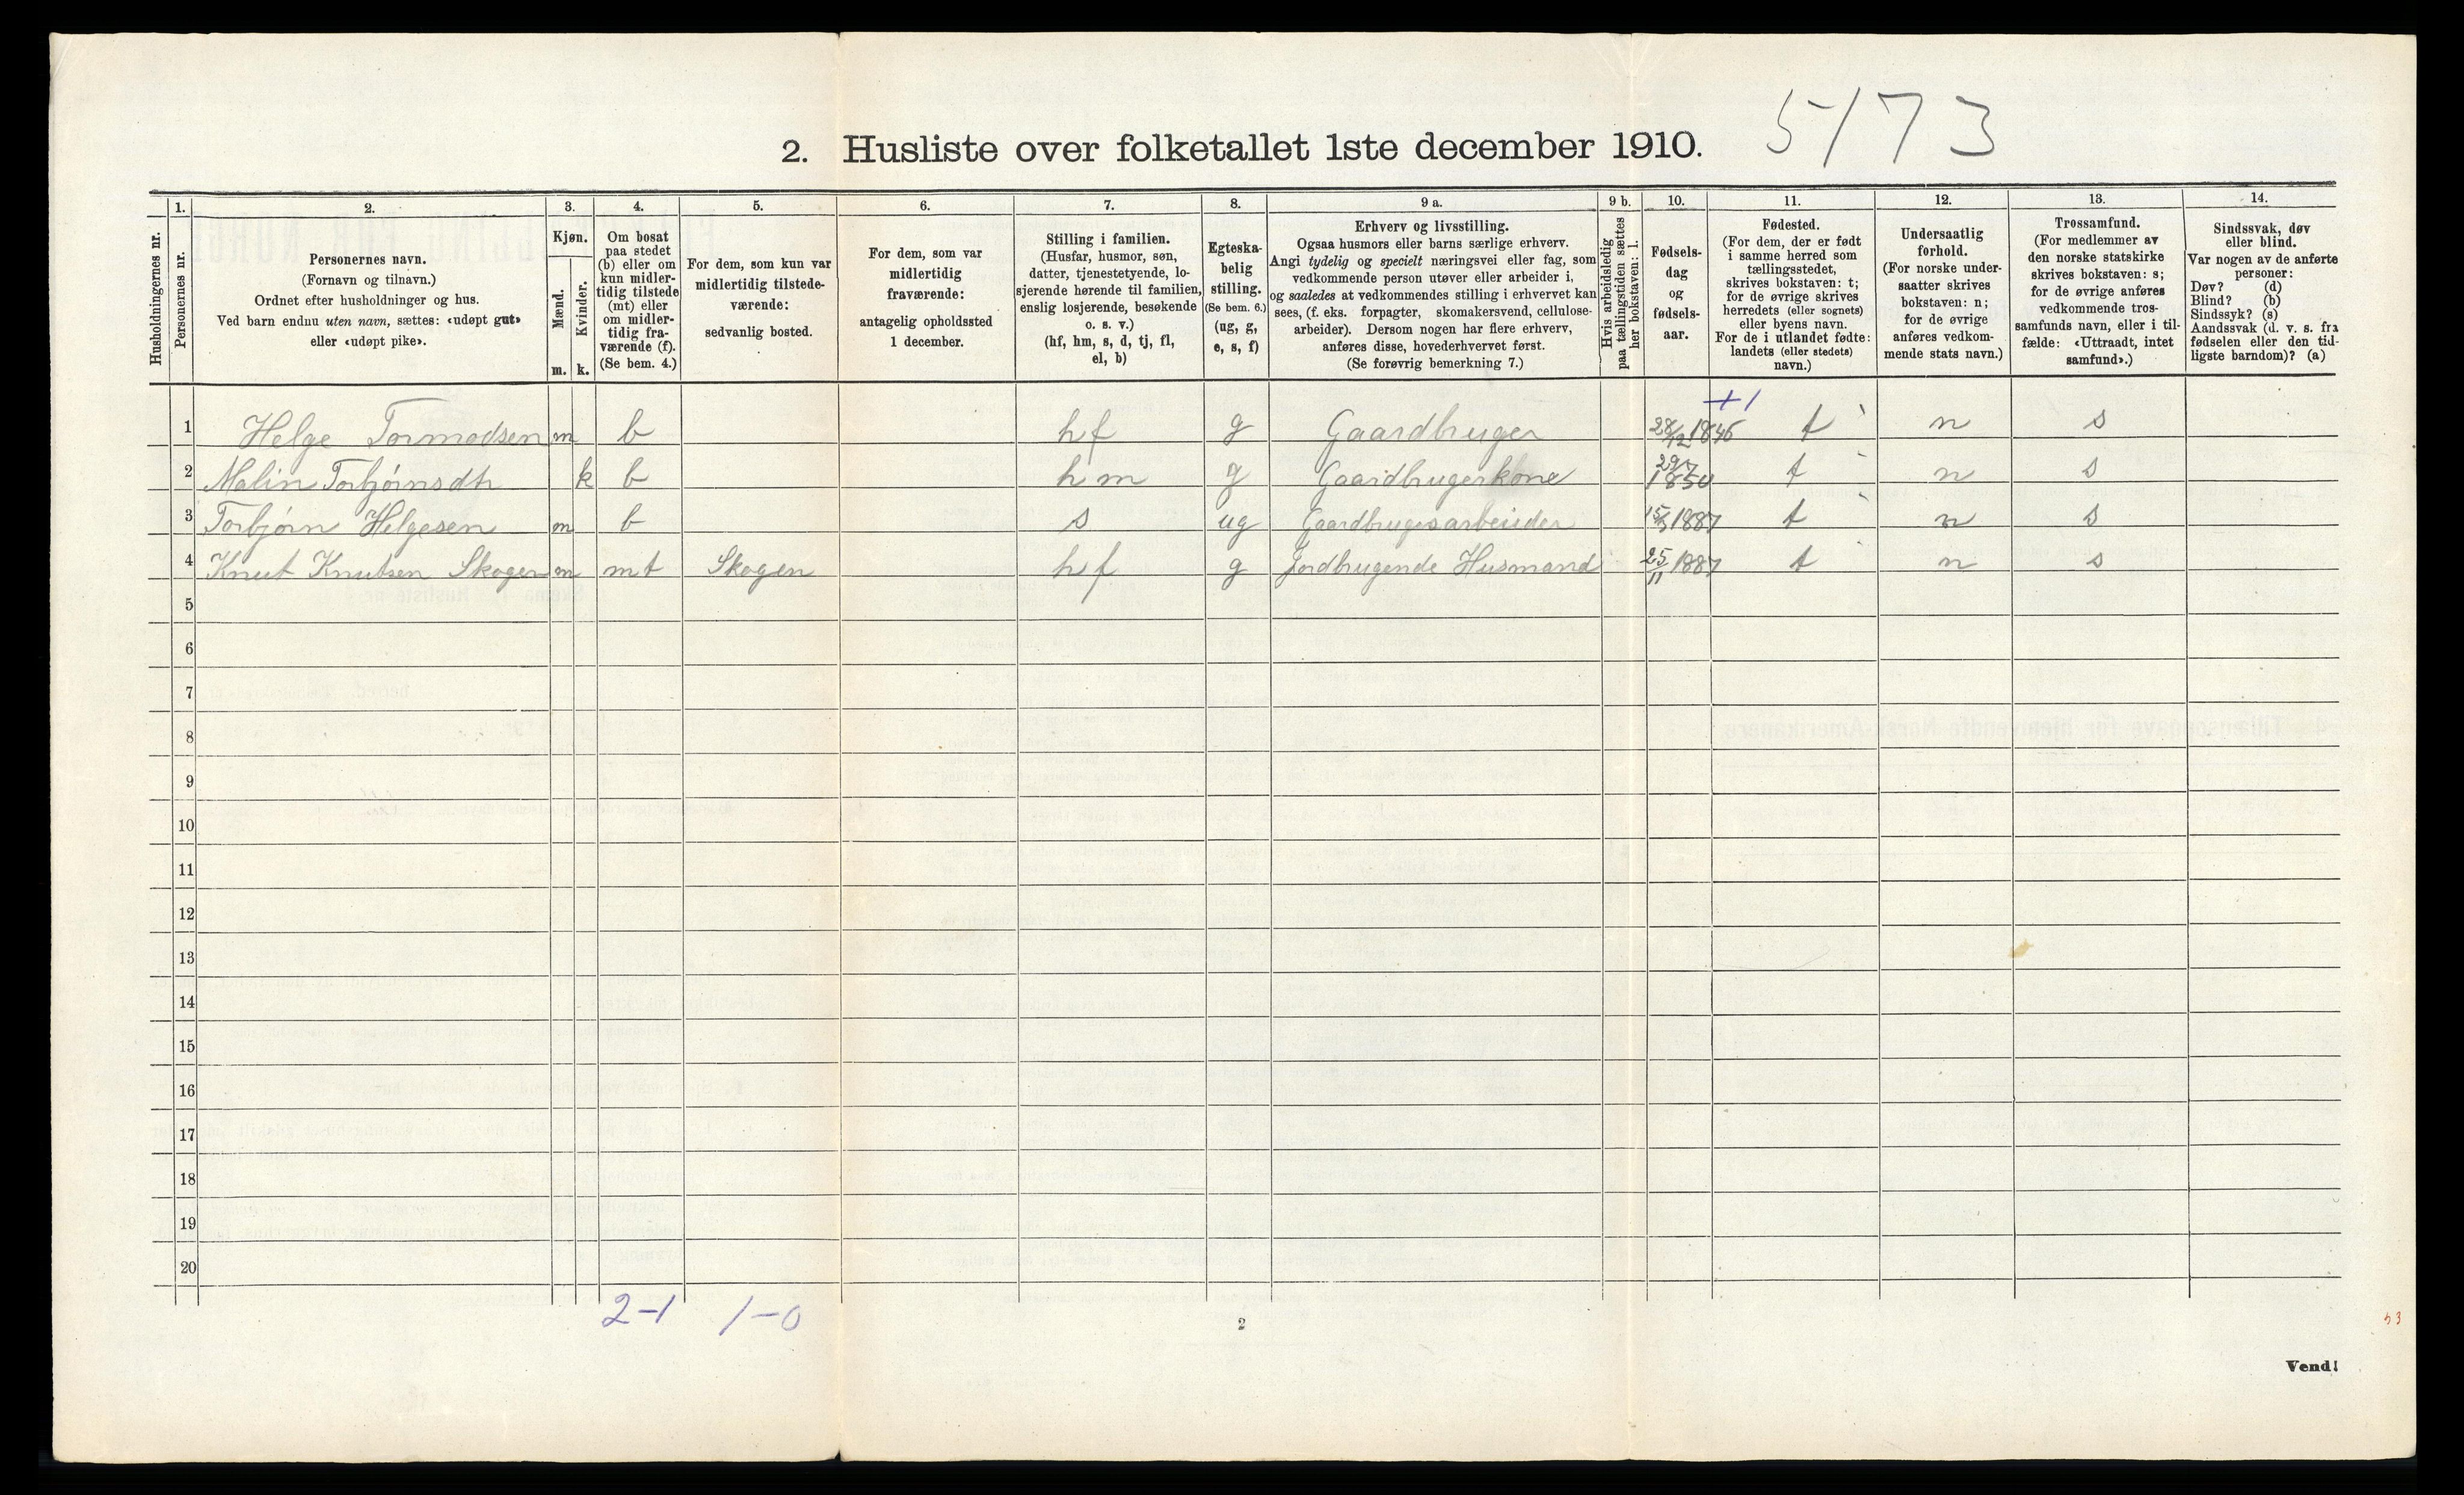 2. Husliste over folketallet 1ste december 1910. 5/73
Husholdningernes nr.
1.
Personernes nr.
2.
Personernes navn.
(Fornavn og tilnavn.)
Ordnet efter husholdninger og hus.
Ved barn endnu uten navn, sættes: «udøpt gut»
eller «udøpt pike».
3.
Kjøn.
Mænd.
Kvinder.
m. k.
4.
Om bosat
paa stedet
(b) eller om
kun midler-
tidig tilstede
(mt) eller
om midler-
tidig fra-
værende (f).
(Se bem. 4.)
5.
For dem, som kun var
midlertidig tilstede-
værende:
sedvanlig bosted.
6.
For dem, som var
midlertidig
fraværende:
antagelig opholdssted
1 december.
7.
Stilling i familien.
(Husfar, husmor, søn,
datter, tjenestetyende, lo-
sjerende hørende til familien,
enslig losjerende, besøkende
o. s. v.)
(hf, hm, s, d, tj, fl,
el, b)
8.
Egteska-
belig
stilling.
(Se bem. 6.)
(ug, g,
e, s, f)
9 a.
Erhverv og livsstilling.
Ogsaa husmors eller barns særlige erhverv.
Angi tydelig og specielt næringsvei eller fag, som
vedkommende person utøver eller arbeider i,
og saaledes at vedkommendes stilling i erhvervet kan
sees, (f. eks. forpagter, skomakersvend, cellulose-
arbeider). Dersom nogen har flere erhverv,
anføres disse, hovederhvervet først.
(Se forøvrig bemerkning 7.)
9 b.
Hvis arbeidsledig
paa tællingstiden sættes
her bokstaven: l.
10.
Fødsels-
dag
og
fødsels-
aar.
11.
Fødested.
(For dem, der er født
i samme herred som
tællingsstedet,
skrives bokstaven: t;
for de øvrige skrives
herredets (eller sognets)
eller byens navn.
For de i utlandet fødte:
landets (eller stedets)
navn.)
12.
Undersaatlig
forhold.
(For norske under-
saatter skrives
bokstaven: n;
for de øvrige
anføres vedkom-
mende stats navn.)
13.
Trossamfund.
(For medlemmer av
den norske statskirke
skrives bokstaven: s;
for de øvrige anføres
vedkommende tros-
samfunds navn, eller i til-
fælde: «Uttraadt, intet
samfund».)
14.
Sindssvak, døv
eller blind.
Var nogen av de anførte
personer:
Døv? (d)
Blind? (b)
Sindssyk? (s)
Aandssvak (d. v. s. fra
fødselen eller den tid-
ligste barndom)? (a)
+1
1 Helge Tormodsen m b hf g Gaardbruger 28/12 1846 t n s
2 Malin Torbjørnsdtr k b hm g Gaardbrugerkone 29/7 1850 t n s
3 Torbjørn Helgesen m b s ug Gaardbrugsarbeider 15/3 1887 t n s
4 Knut Knutsen Skogen m mt Skogen hf g Jordbrugende Husmand 25/11 1887 t n s
5
6
7
8
9
10
11
12
13
14
15
16
17
18
19
20
2-1 1-0
2
53
Vend!